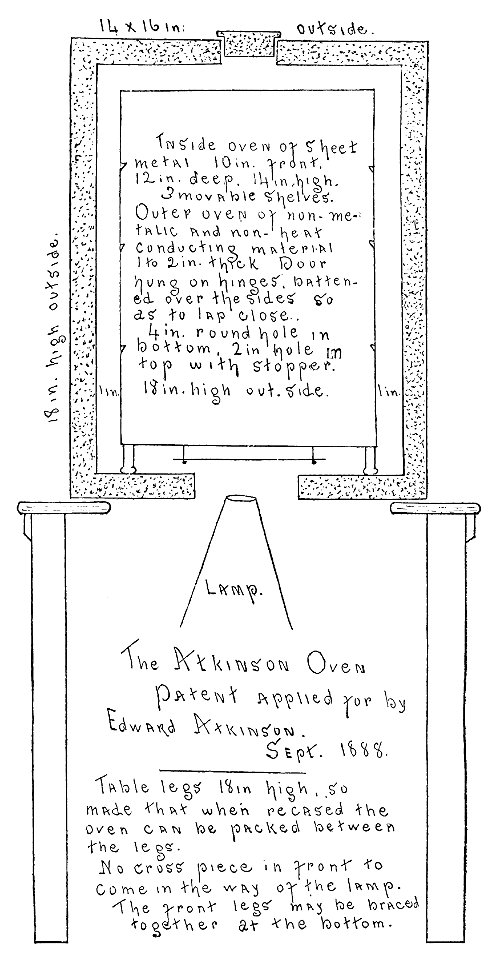 14 x 16 in: outside.
18 in. high outside.
Inside oven of sheet
metal 10 in. front,
12 in. deep, 14 in. high.
3 movable shelves.
Outer oven of non-me-
talic and non-heat
conducting material
1 to 2 in. thick Door
hung on hinges, batten-
ed over the sides so
as to lap close.
4 in. round hole in
bottom, 2 in hole in
top with stopper.
18 in. high out. side.
1 in.
1 in.
Lamp.
The Atkinson Oven
Patent applied for by
Edward Atkinson.
Sept. 1888.
Table legs 18 in high, so
made that when recased the
oven can be packed between
the legs.
No cross piece in front to
come in the way of the lamp.
The front legs may be braced
together at the bottom.